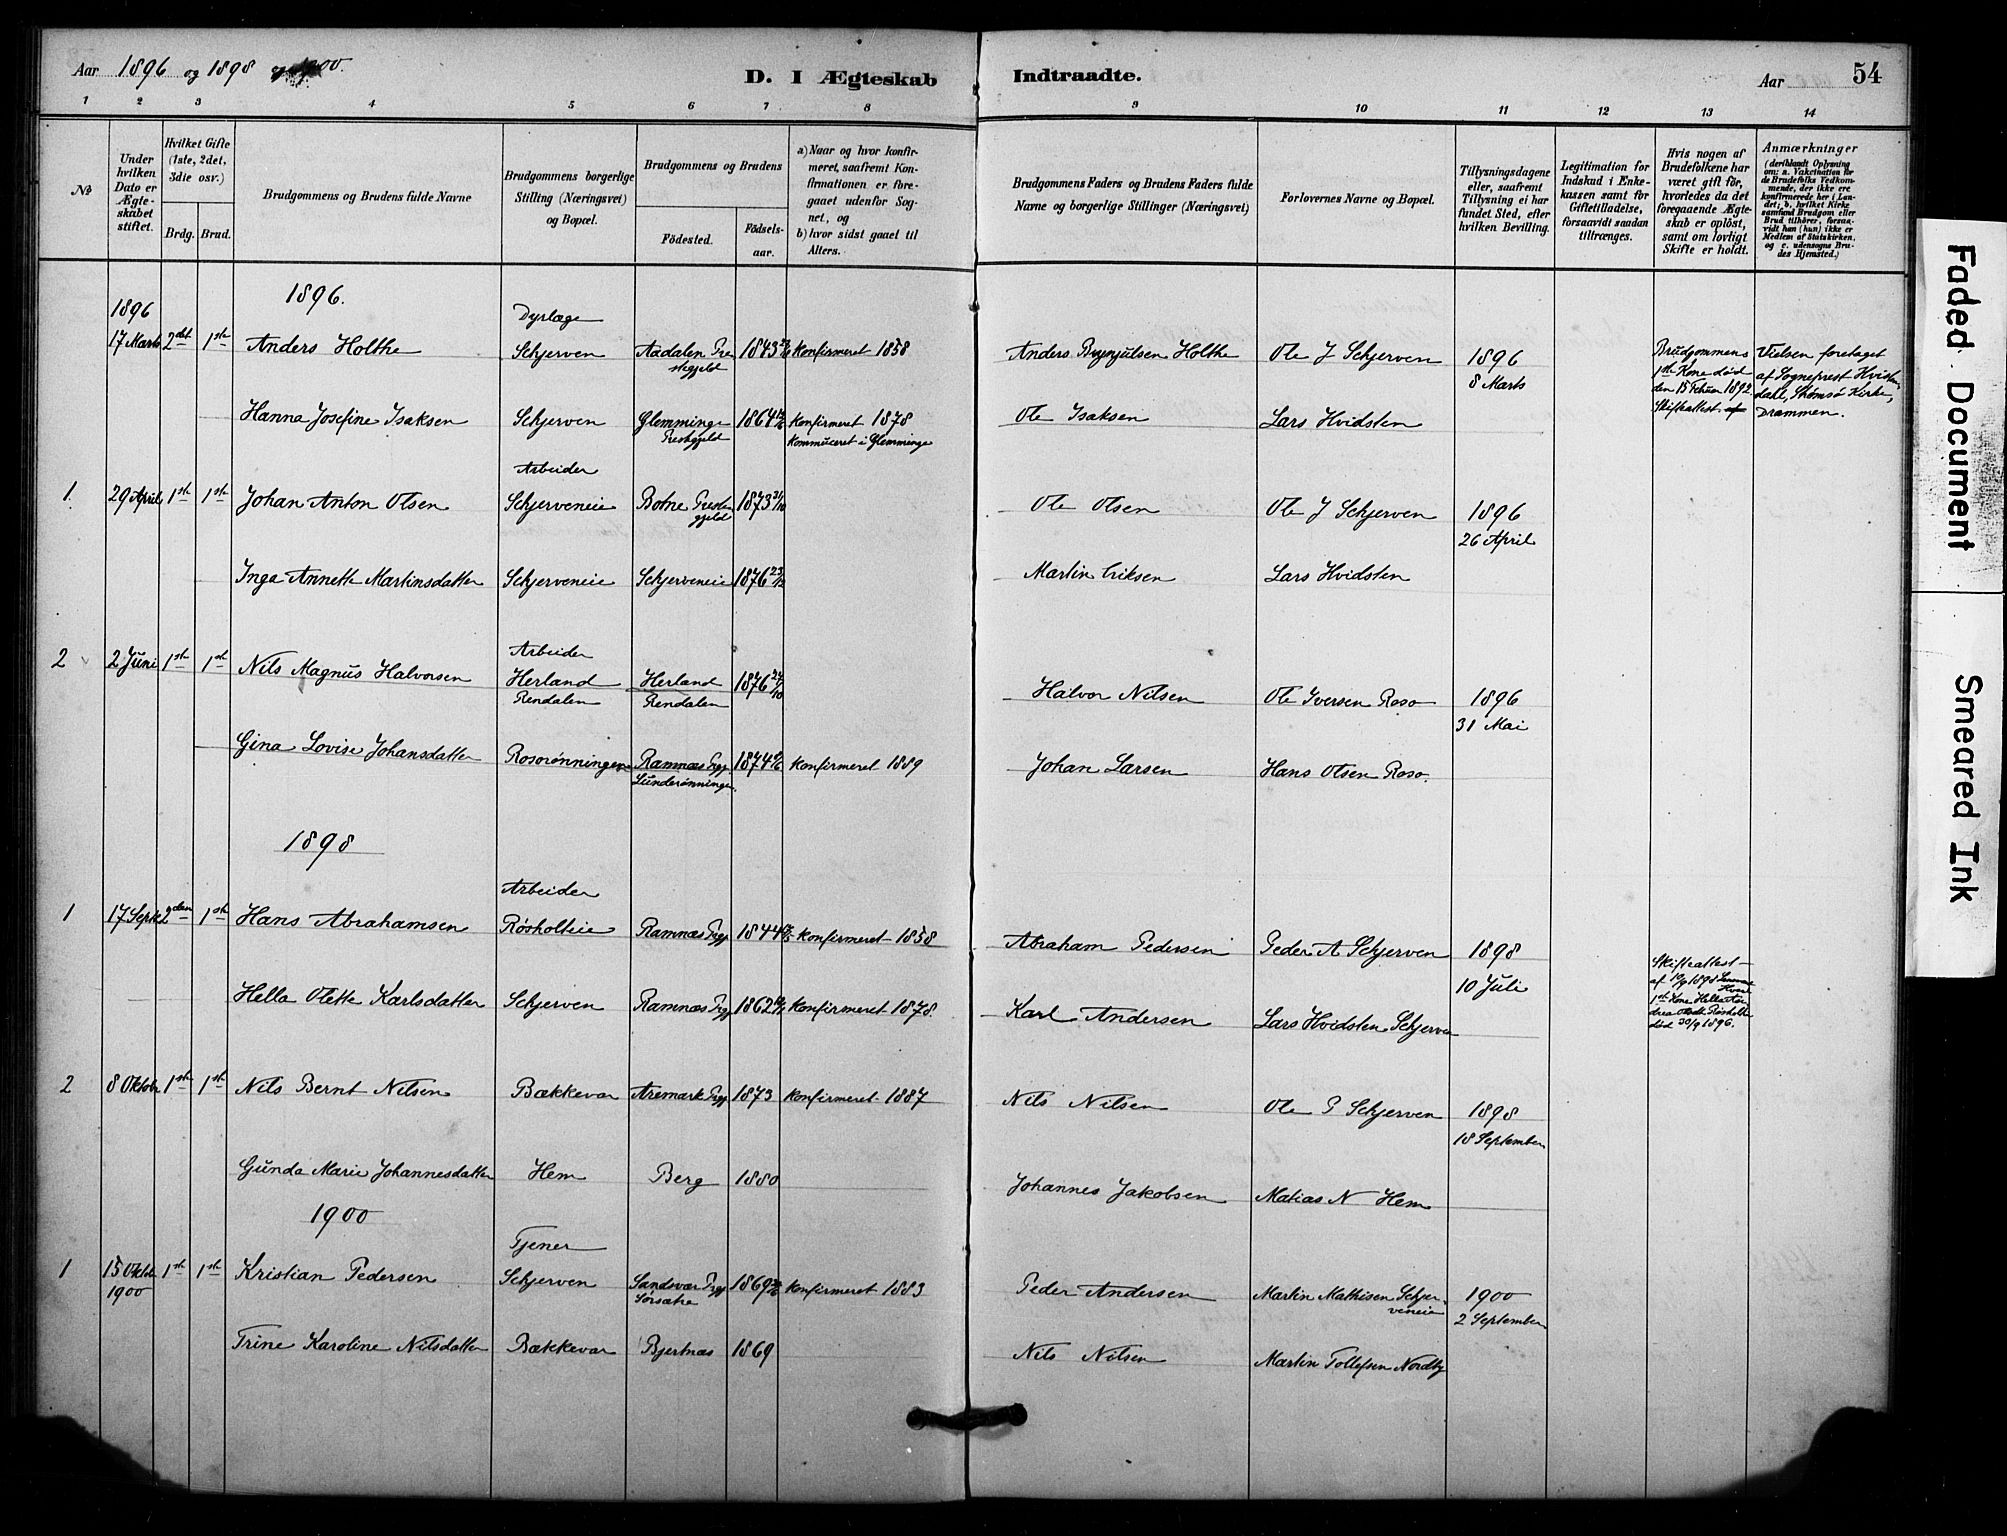 Aar 1896 og 1898 og 1900.
D. I Ægteskab Indtraadte.
Aar 54
1 2 3 4 5 6 7 8 9 10 11 12 13 14
№
Under hvilken Dato er Ægteskabet stiftet.
Hvilket Gifte (1ste, 2det, 3die osv.)
Brdg. Brud.
Brudgommens og Brudens fulde Navne
Brudgommens borgerlige Stilling (Næringsvei) og Bopæl.
Brudgommens og Brudens
Fødested.
Fødselsaar.
a) Naar og hvor konfirmeret, saafremt Konfirmationen er foregaaet udenfor Sognet, og
b) hvor sidst gaaet til Alters.
Brudgommens Faders og Brudens Faders fulde Navne og borgerlige Stillinger (Næringsvei)
Forlovernes Navne og Bopæl.
Tillysningsdagene eller, saafremt Tillysning ei har fundet Sted, efter hvilken Bevilling.
Legitimation for Indskud i Enkekassen samt for Giftetilladelse, forsaavidt saadan tiltrænges.
Hvis nogen af Brudefolkene har været gift før, hvorledes da det foregaaende Ægteskab er opløst, samt om lovligt Skifte er holdt.
Anmærkninger
(deriblandt Oplysning om: a. Vakcination for de Brudefolks Vedkommende, der ikke ere konfirmerede her i Landet; b. hvilket Kirkesamfund Brudgom eller Brud tilhører, forsaavidt han (hun) ikke er Medlem af Statskirken, og c. udensogns Brudes Hjemsted.)
1896.
1896
17 Marts 2det 1ste Anders Holthe Dyrlæge Schjerven Aadalen Prestegjeld 1843 Konfirmeret 1858 Anders Holthe Ole J Schjerven 1896 8 Marts
Brudgommens 1ste Kone død den 15 Februar 1892. Skifteattest
Vielsen foretaget af Sogneprest Hvistendahl, Strømsø Kirke, Drammen.
Hanna Josefine Isaksen Schjerven Glemminge Prestgjeld 1864 Konfirmeret 1878 Kommuceret i Glemminge Ole Isaksen Lars Hvidsten
1. 29 April 1ste 1ste Johan Anton Olsen Arbeider Schjerveneie Botne Prestegjeld 1873 21/10 Ole Olsen Ole J Schjerven 1896 26 April
Inga Annette Martinsdatter Schjerveneie Schjerveneie 1876 23/12 Martin Eriksen Lars Hvidsten
2 2 Juni 1ste 1ste Nils Magnus Halvorsen Arbeider Herland Rendalen Herland Rendalen 1876 24/10 Halvor Nilsen Ole Iversen Roso 1896 31 Mai
Gina Lovise Johansdatter Rosorønningen Ramnæs Pgj. Sunderønningen 1874 Konfirmeret 1889 Johan Larsen Hans Olsen Roso.
1898
1 17 Sept. 2den 1ste Hans Abrahamsen Arbeider Røsholteie Ramnæs Pgj 1844 Konfirmeret 1858 Abraham Pedersen Peder A Schjerven 1898 10 Juli
Skifteattest af 1898 1ste Kone død 30/9 1896.
Hella Olette Karlsdatter Schjerven Ramnæs Pgj 1862 Konfirmeret 1878. Karl Andersen Lars Hvidsten Schjerven
2 8 Oktobr 1ste 1ste Nils Bernt Nilsen Bækkevar Aremark Pgj 1873 Konfirmeret 1887 Nils Nilsen Ole P Schjerven 1898 18 September
Gunda Marie Johannesdatter Hem Berg 1880 Johannes Jakobsen Matias N Hem
1900
1 15 Oktobr 1900 1ste 1ste Kristian Pedersen Tjener Schjerven Sandsvær Pgj Sørsætre 1869 Konfirmeret 1883 Peder Andersen Martin Mathisen Schjerveneie 1900 2 September
Trine Karoline Nilsdatter Bækkevar Bjertnæs 1869 Nils Nilsen Martin Tollefsen Nordby
Faded Document
Smeared Ink